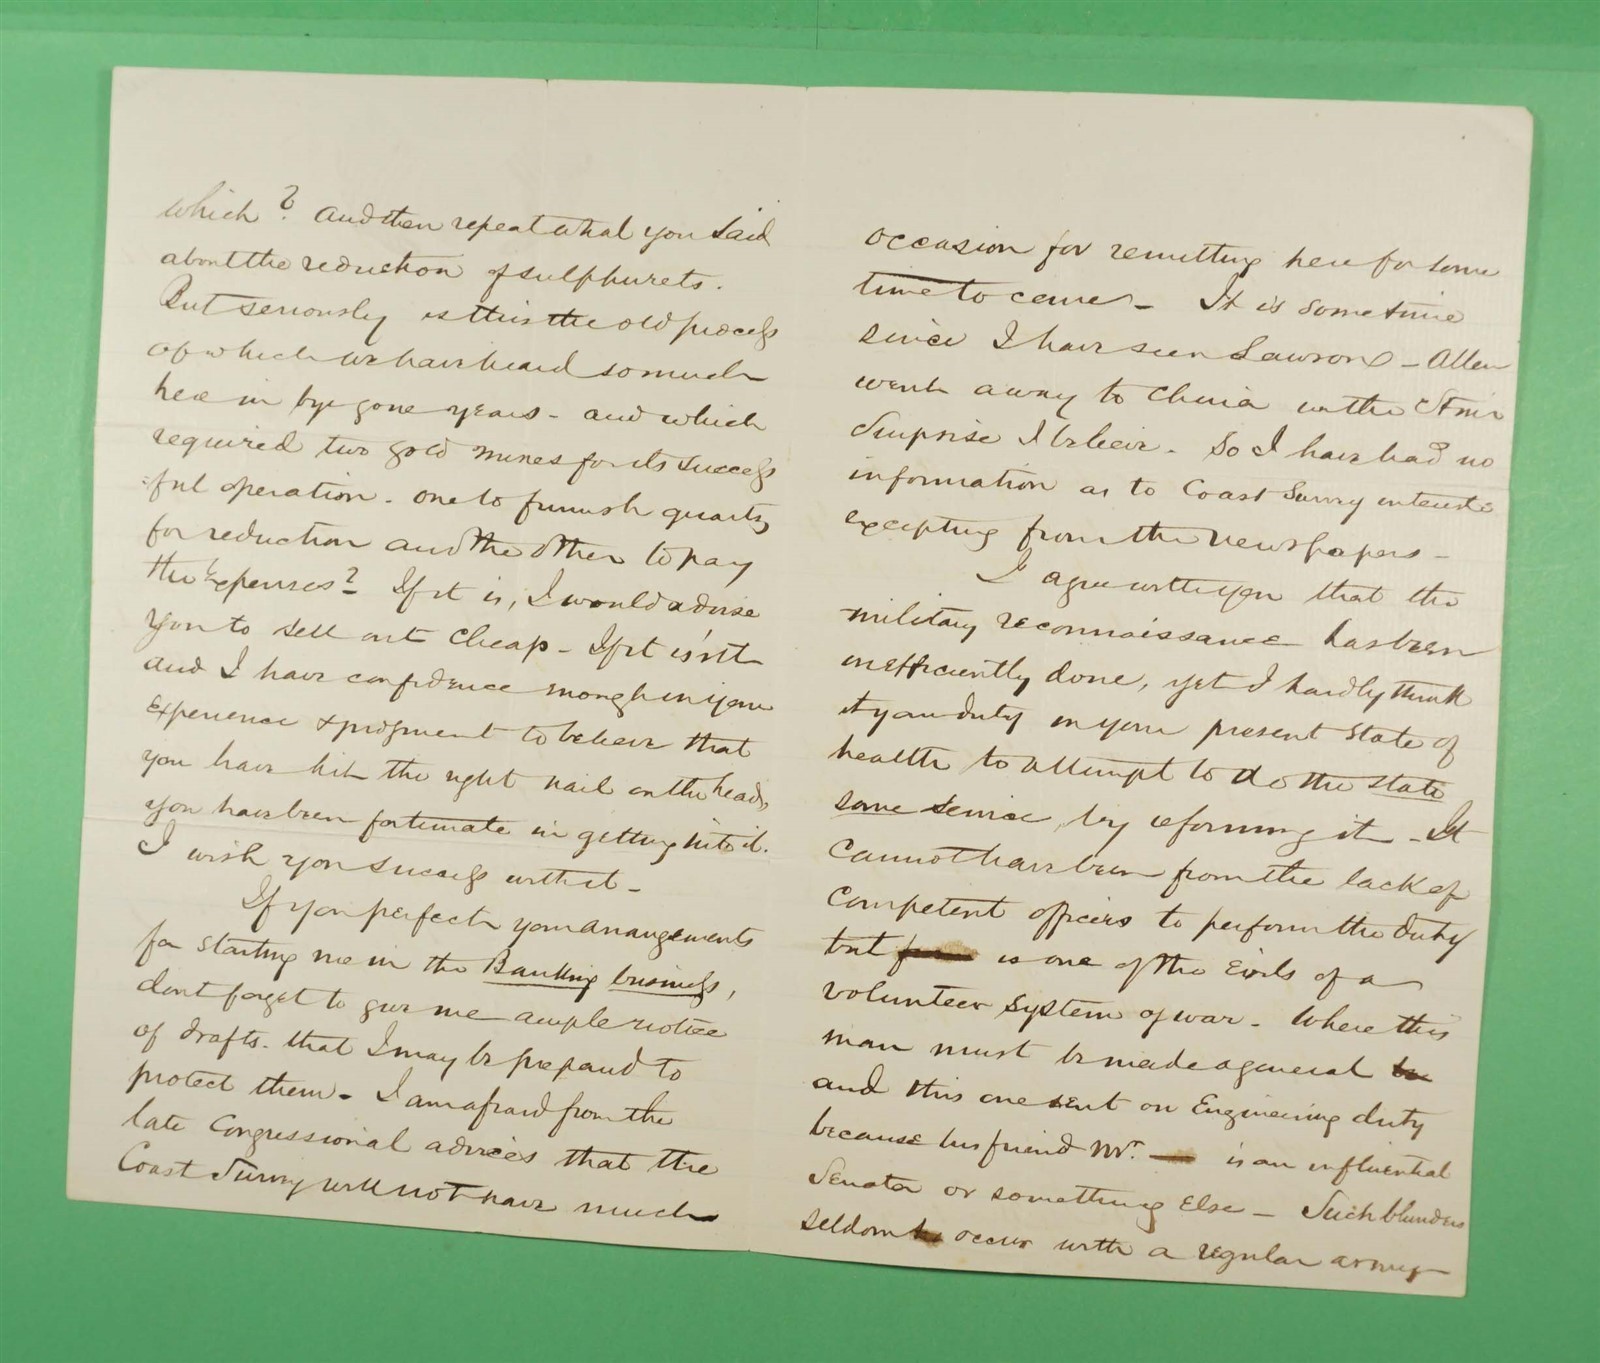 which? and then repeat what you said
about the reduction of sulphurets.
But seriously is this the old process
of which we have heard so much
here in bye gone years - and which
required two gold mines for its success
=ful operation - one to furnish quartz
for reduction and the other to pay
the expenses? - If it is, I would advise
you to sell out cheap - If it is'nt
and I have confidence enough in your
experience & judgment to believe that
you have hit the right nail on the head,
you have been fortunate in getting into it.
I wish you success with it -
If you perfect your arrangements
for starting me in the Banking business,
dont forget to give me ample notice
of drafts - that I may be prepared to
protect them - I am afraid from the
late Congressional advices that the
Coast Survey will not have much
occasion for remitting here for some
time to come - It is some time
since I have seen Lawson - Allen
went away to China in the Stmr
Surprise I believe - So I have had no
information as to Coast Survey interests
excepting from the newspapers -
I agree with you that the
military reconnaissance has been
inefficiently done, yet I hardly think
it your duty in your present state of
health to attempt to do the state
some service, by reforming it - It
cannot have been from the lack of
competent officers to perform the duty
but is one of the Evils of a
volunteer system of war - Where this
man must be made a general
and this one sent on Engineering duty
because his friend Mr. — is an influential
Senator or something else - Such blunders
seldom occur with a regular army -